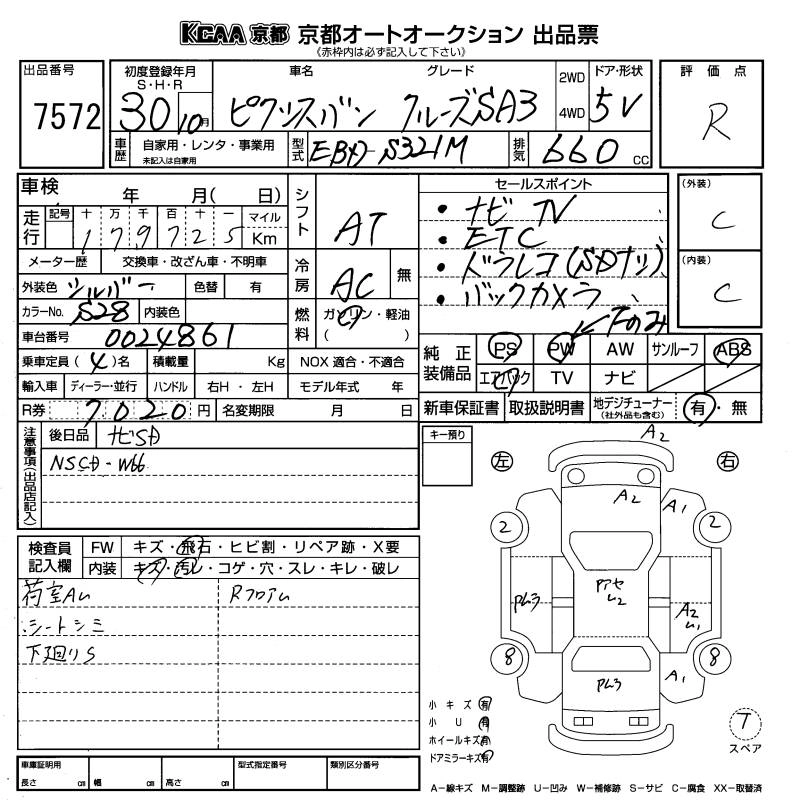 KCAA 京都 京都オートオークション 出品票
《赤枠内は必ず記入して下さい》
出品番号
7572
初度登録年月
S・H・R
30 10月
車名
ピクシスバン
グレード
クルーズSA3
2WD
4WD
ドア・形状
5V
評価点
R
車歴
自家用・レンタ・事業用
未記入は自家用
型式
EBD-S321M
排気
660 CC
車検 年 月( 日)
走行
記号 十 万 千 百 十 一 マイル
179725 Km
メーター歴 交換車・改ざん車・不明車
外装色 シルバー 色替 有
カラーNo. S28 内装色
車台番号 0024861
乗車定員 (4)名 積載量 Kg NOX 適合・不適合
輸入車 ディーラー・並行 ハンドル 右H・左H モデル年式 年
R券 7020 円 名変期限 月 日
シフト AT
冷房 AC 無
燃料 ガソリン・軽油
( )
セールスポイント
・ナビ TV
・ETC
・ドラレコ(SDナシ)
・バックカメラ
Fのみ
(外装)
C
(内装)
C
純正装備品
PS PW AW サンルーフ ABS
エアバック TV ナビ
新車保証書 取扱説明書 地デジチューナー (社外品も含む) 有・無
注意事項(出品店記入)
後日品 ナビSD
NSCD-W66
キー預り
検査員記入欄
FW キズ・飛石・ヒビ割・リペア跡・X要
内装 キズ・汚レ・コゲ・穴・スレ・キレ・破レ
荷室Aム Rフロアム
シートシミ
下廻りS
左 右
A2
A2
A1
2
2
Pム3
Pアセム2
A2
ム1
8
8
Pム3
A1
小キズ 有
小U 有
ホイールキズ 有
ドアミラーキズ 有
T
スペア
車庫証明用
長さ cm 幅 cm 高さ cm
型式指定番号
類別区分番号
A−線キズ M−調整跡 U−凹み W−補修跡 S−サビ C−腐食 XX−取替済